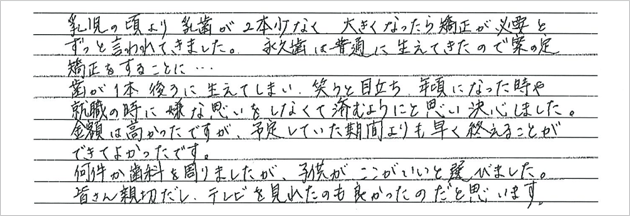 乳児の頃より乳歯が2本少なく 大きくなったら矯正が必要と
ずっと言われてきました。 永久歯は普通に生えてきたので案の定
矯正をすることに…
歯が1本後ろに生えてしまい、笑うと目立ち 年頃になった時や
就職の時に嫌な思いをしなくて済むようにと思い決心しました。
金額は高かったですが、予定していた期間よりも早く終えることが
できてよかったです。
何件か歯科を周りましたが、子供がここがいいと選びました。
皆さん親切だし、テレビを見れたのも良かったのだと思います。